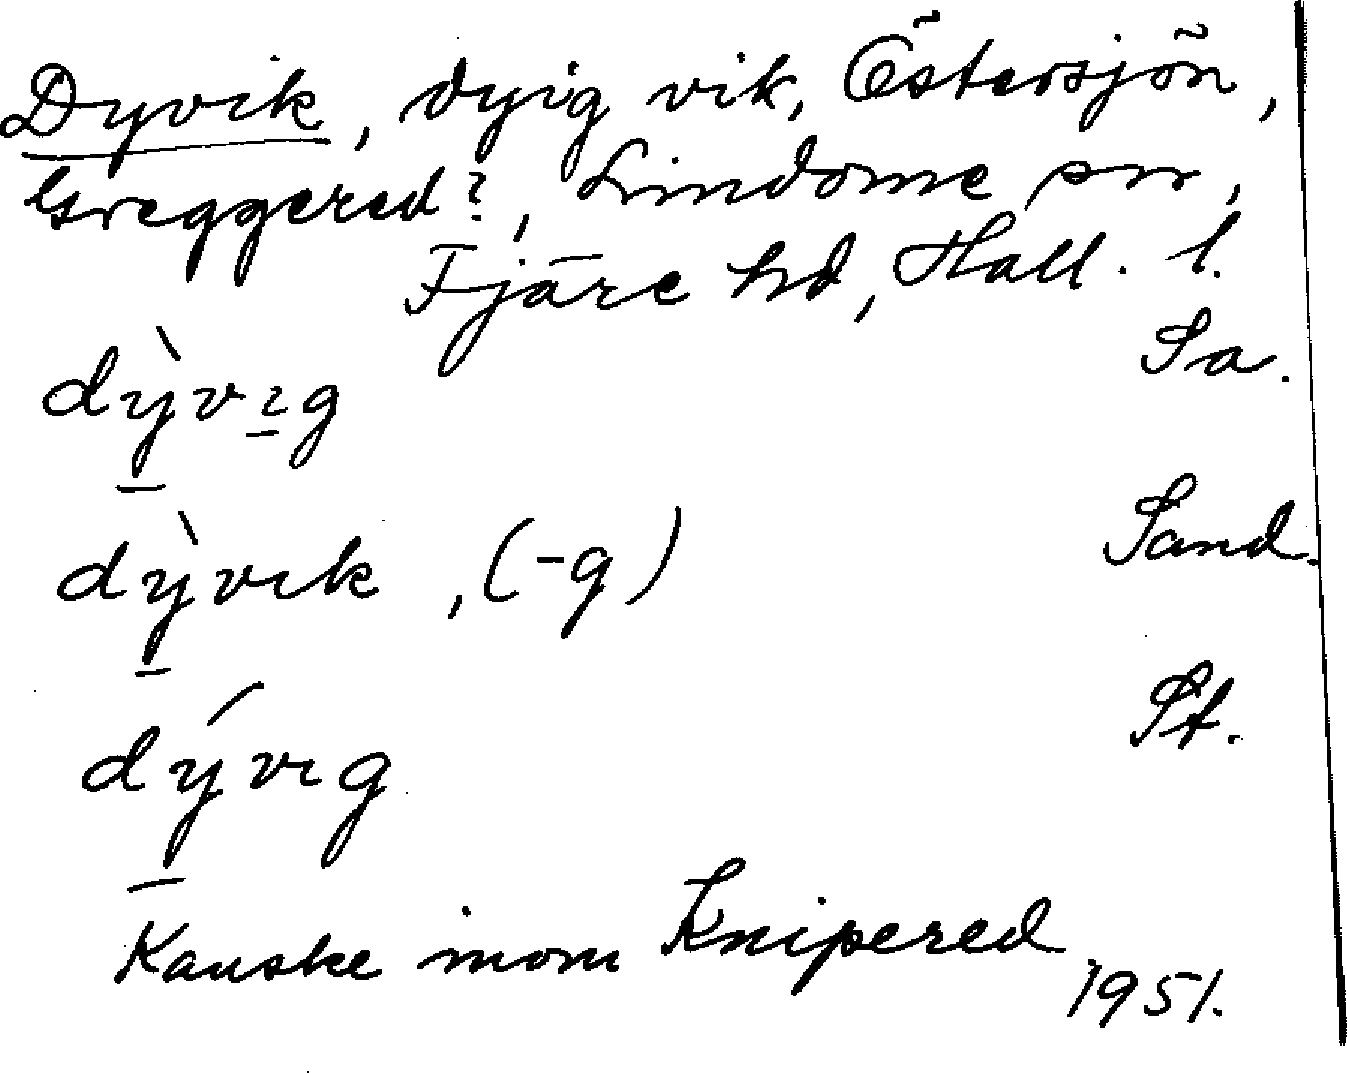 Dyvik, dyig vik, Östersjön,
Greggered?, Lindome sn,
Fjäre hd, Hall. l.
dỳ̱vɪ̱g Sa.
dỳ̱vık, (-g) Sand.
dý̱vıg St.
Kanske inom Knipered
1951.